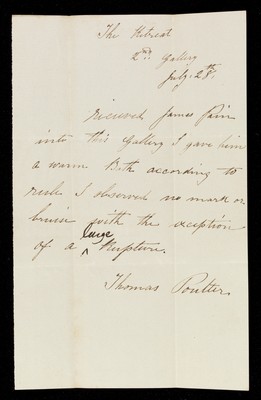 The Retreat
2nd. Gallery
July. 28th.
received James Pain
into this Gallery I gave him
a warm Bath according to
rule I observed no mark or
bruise with the exception
of a large Rupture.
Thomas Poulter.